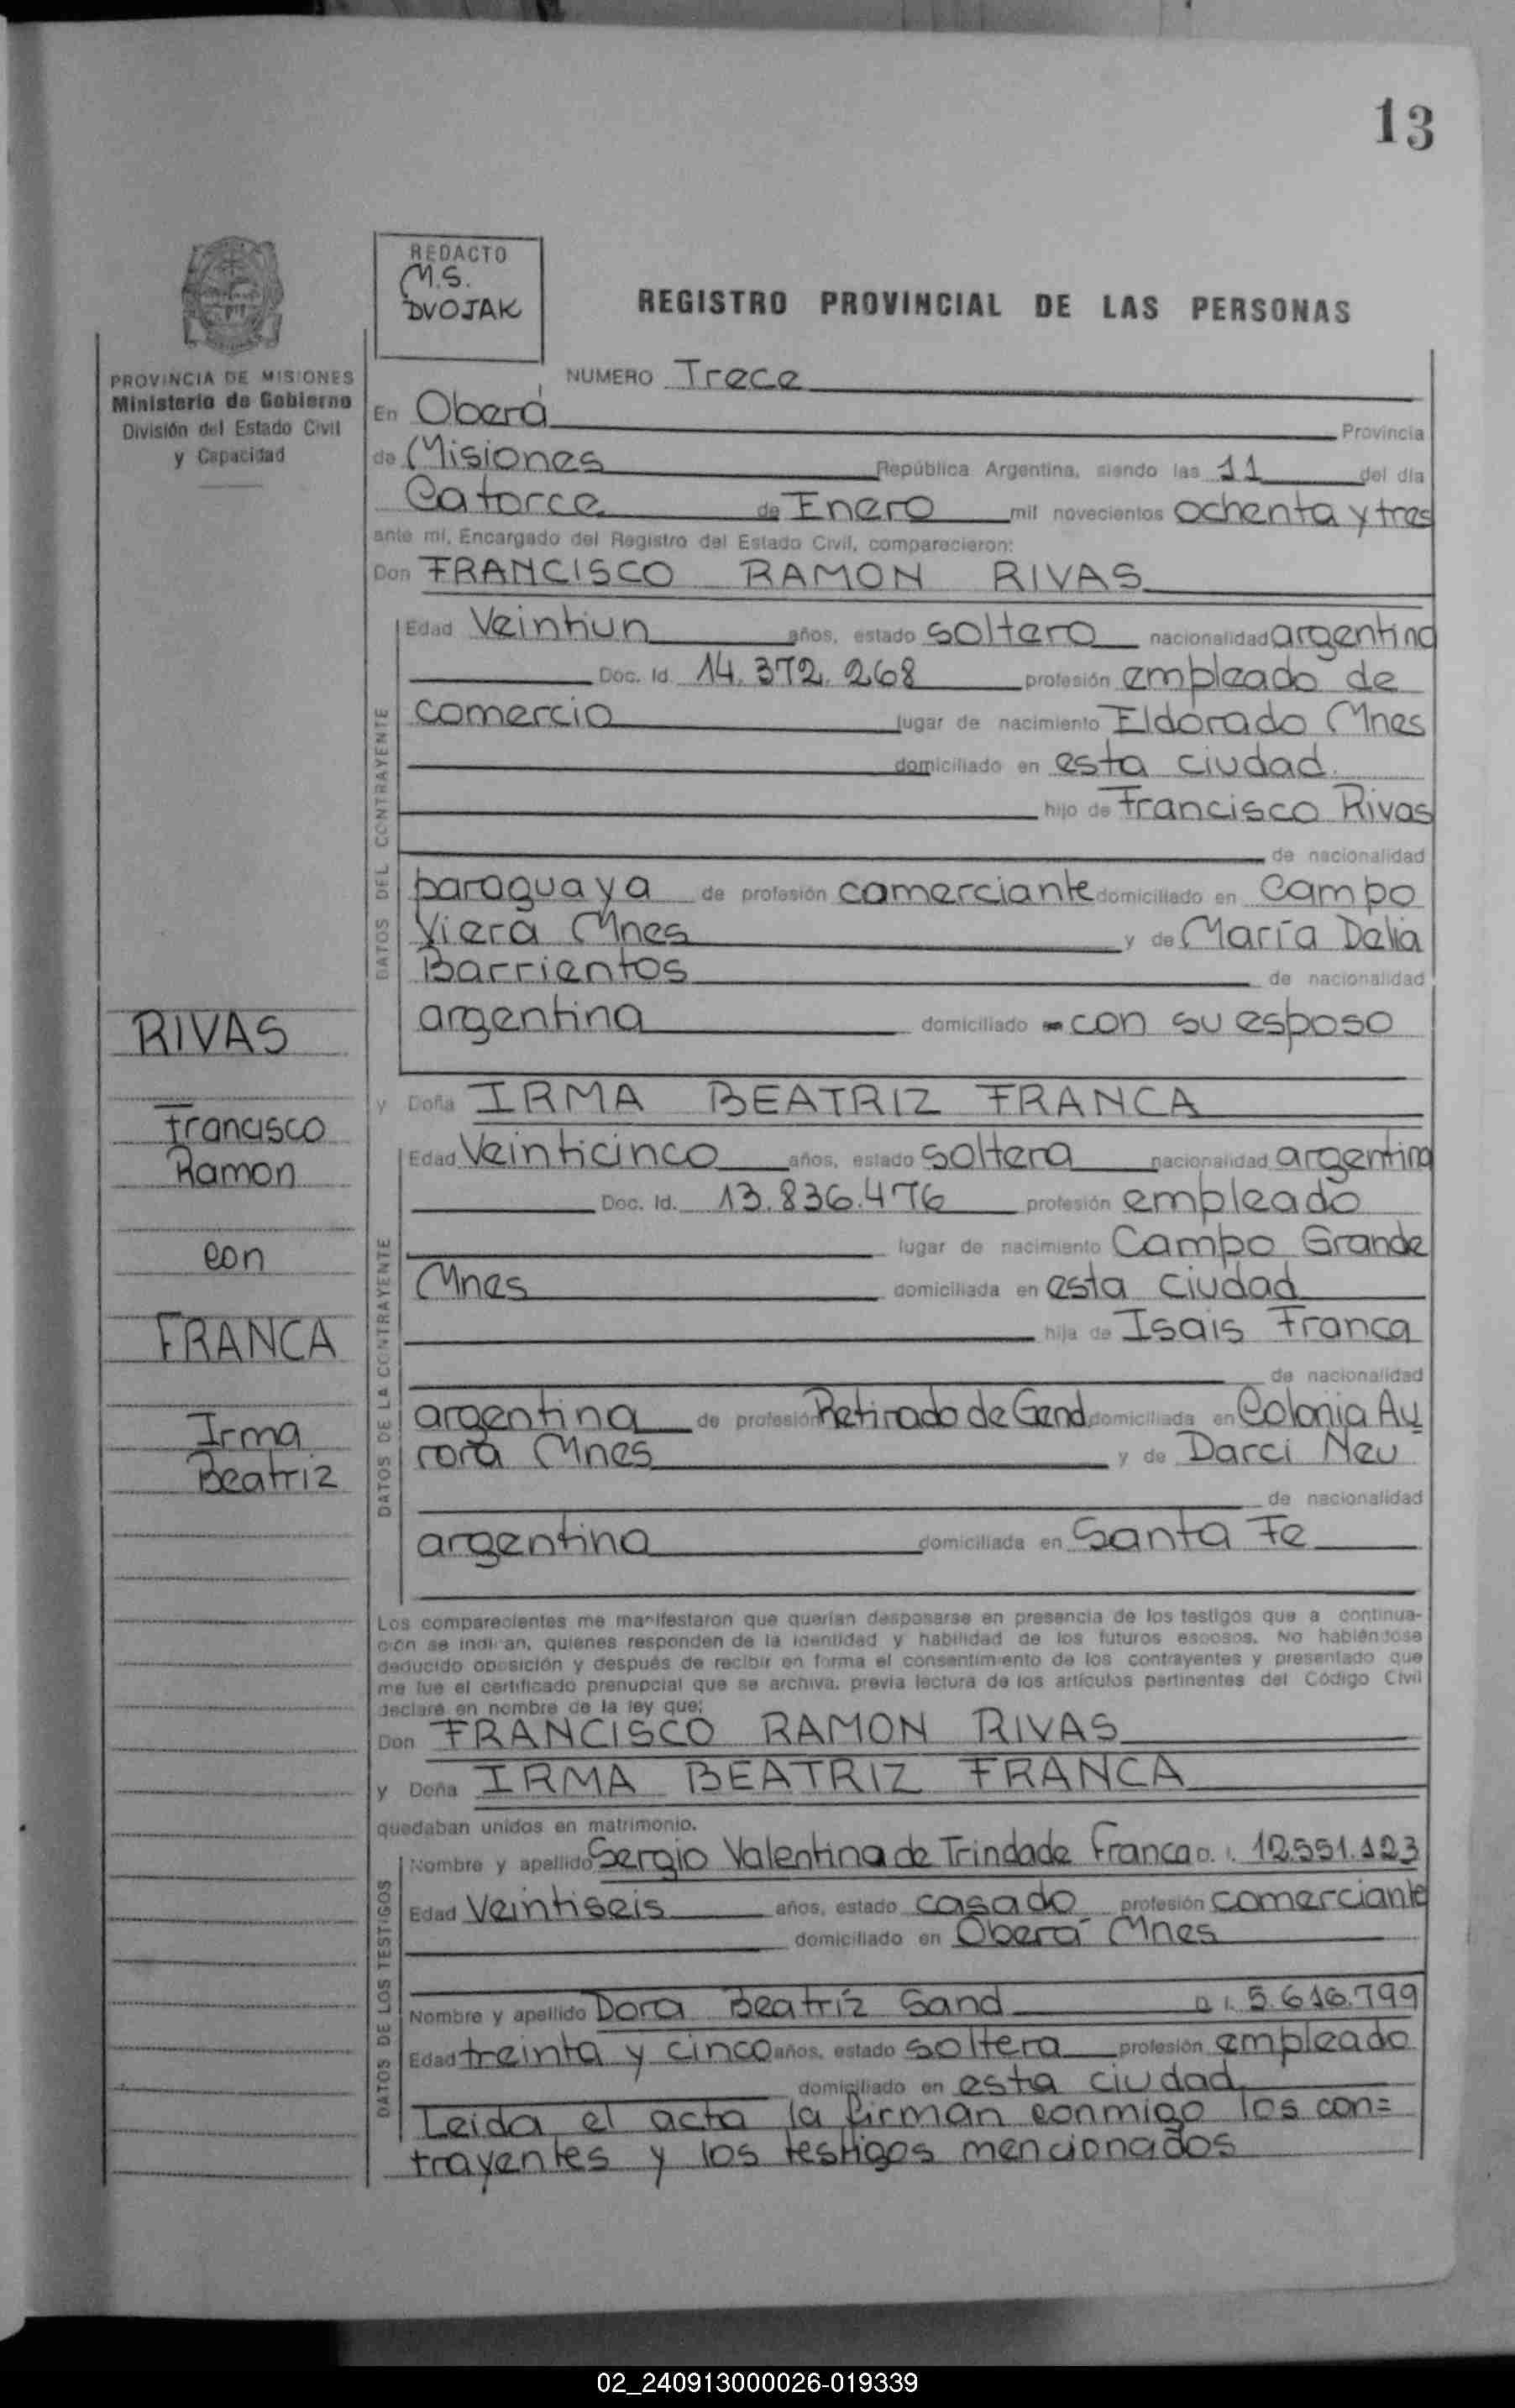 13
REDACTO
M.S.
DVOJAK
REGISTRO PROVINCIAL DE LAS PERSONAS
PROVINCIA DE MISIONES
Ministerio de Gobierno
División del Estado Civil
y Capacidad
NUMERO Trece
En Oberá Provincia
de Misiones República Argentina, siendo las 11 del día
Catorce de Enero mil novecientos ochenta y tres
ante mí, Encargado del Registro del Estado Civil, comparecieron:
Don FRANCISCO RAMON RIVAS
DATOS DEL CONTRAYENTE
Edad Veintiun años, estado soltero nacionalidad argentina
Doc. Id. 14.372.268 profesión empleado de
comercio lugar de nacimiento Eldorado Mnes
domiciliado en esta ciudad.
hijo de Francisco Rivas
de nacionalidad
paraguaya de profesión comerciante domiciliado en Campo
Viera Mnes y de María Delia
Barrientos de nacionalidad
argentina domiciliado con su esposo
RIVAS
Francisco
Ramon
con
FRANCA
Irma
Beatriz
y Doña IRMA BEATRIZ FRANCA
DATOS DE LA CONTRAYENTE
Edad Veinticinco años, estado soltera nacionalidad argentina
Doc. Id. 13.836.476 profesión empleado
lugar de nacimiento Campo Grande
Mnes domiciliada en esta ciudad
hija de Isais Franca
de nacionalidad
argentina de profesión Retirado de Gend. domiciliada en Colonia Au
rora Mnes y de Darci Neu
de nacionalidad
argentina domiciliada en Santa Fe
Los comparecientes me manifestaron que querían desposarse en presencia de los testigos que a continua-
ción se indican, quienes responden de la identidad y habilidad de los futuros esposos. No habiéndose
deducido oposición y después de recibir en forma el consentimiento de los contrayentes y presentado que
me fue el certificado prenupcial que se archiva, previa lectura de los artículos pertinentes del Código Civil
declaré en nombre de la ley que:
Don FRANCISCO RAMON RIVAS
y Doña IRMA BEATRIZ FRANCA
quedaban unidos en matrimonio.
DATOS DE LOS TESTIGOS
Nombre y apellido Sergio Valentina de Trindade Franca D. I. 12.551.123
Edad Veintiseis años, estado casado profesión comerciante
domiciliado en Oberá Mnes
Nombre y apellido Dora Beatriz Sand D. I. 5.616.799
Edad treinta y cinco años, estado soltera profesión empleado
domiciliado en esta ciudad
Leida el acta la firman conmigo los con=
trayentes y los testigos mencionados
02_240913000026-019339